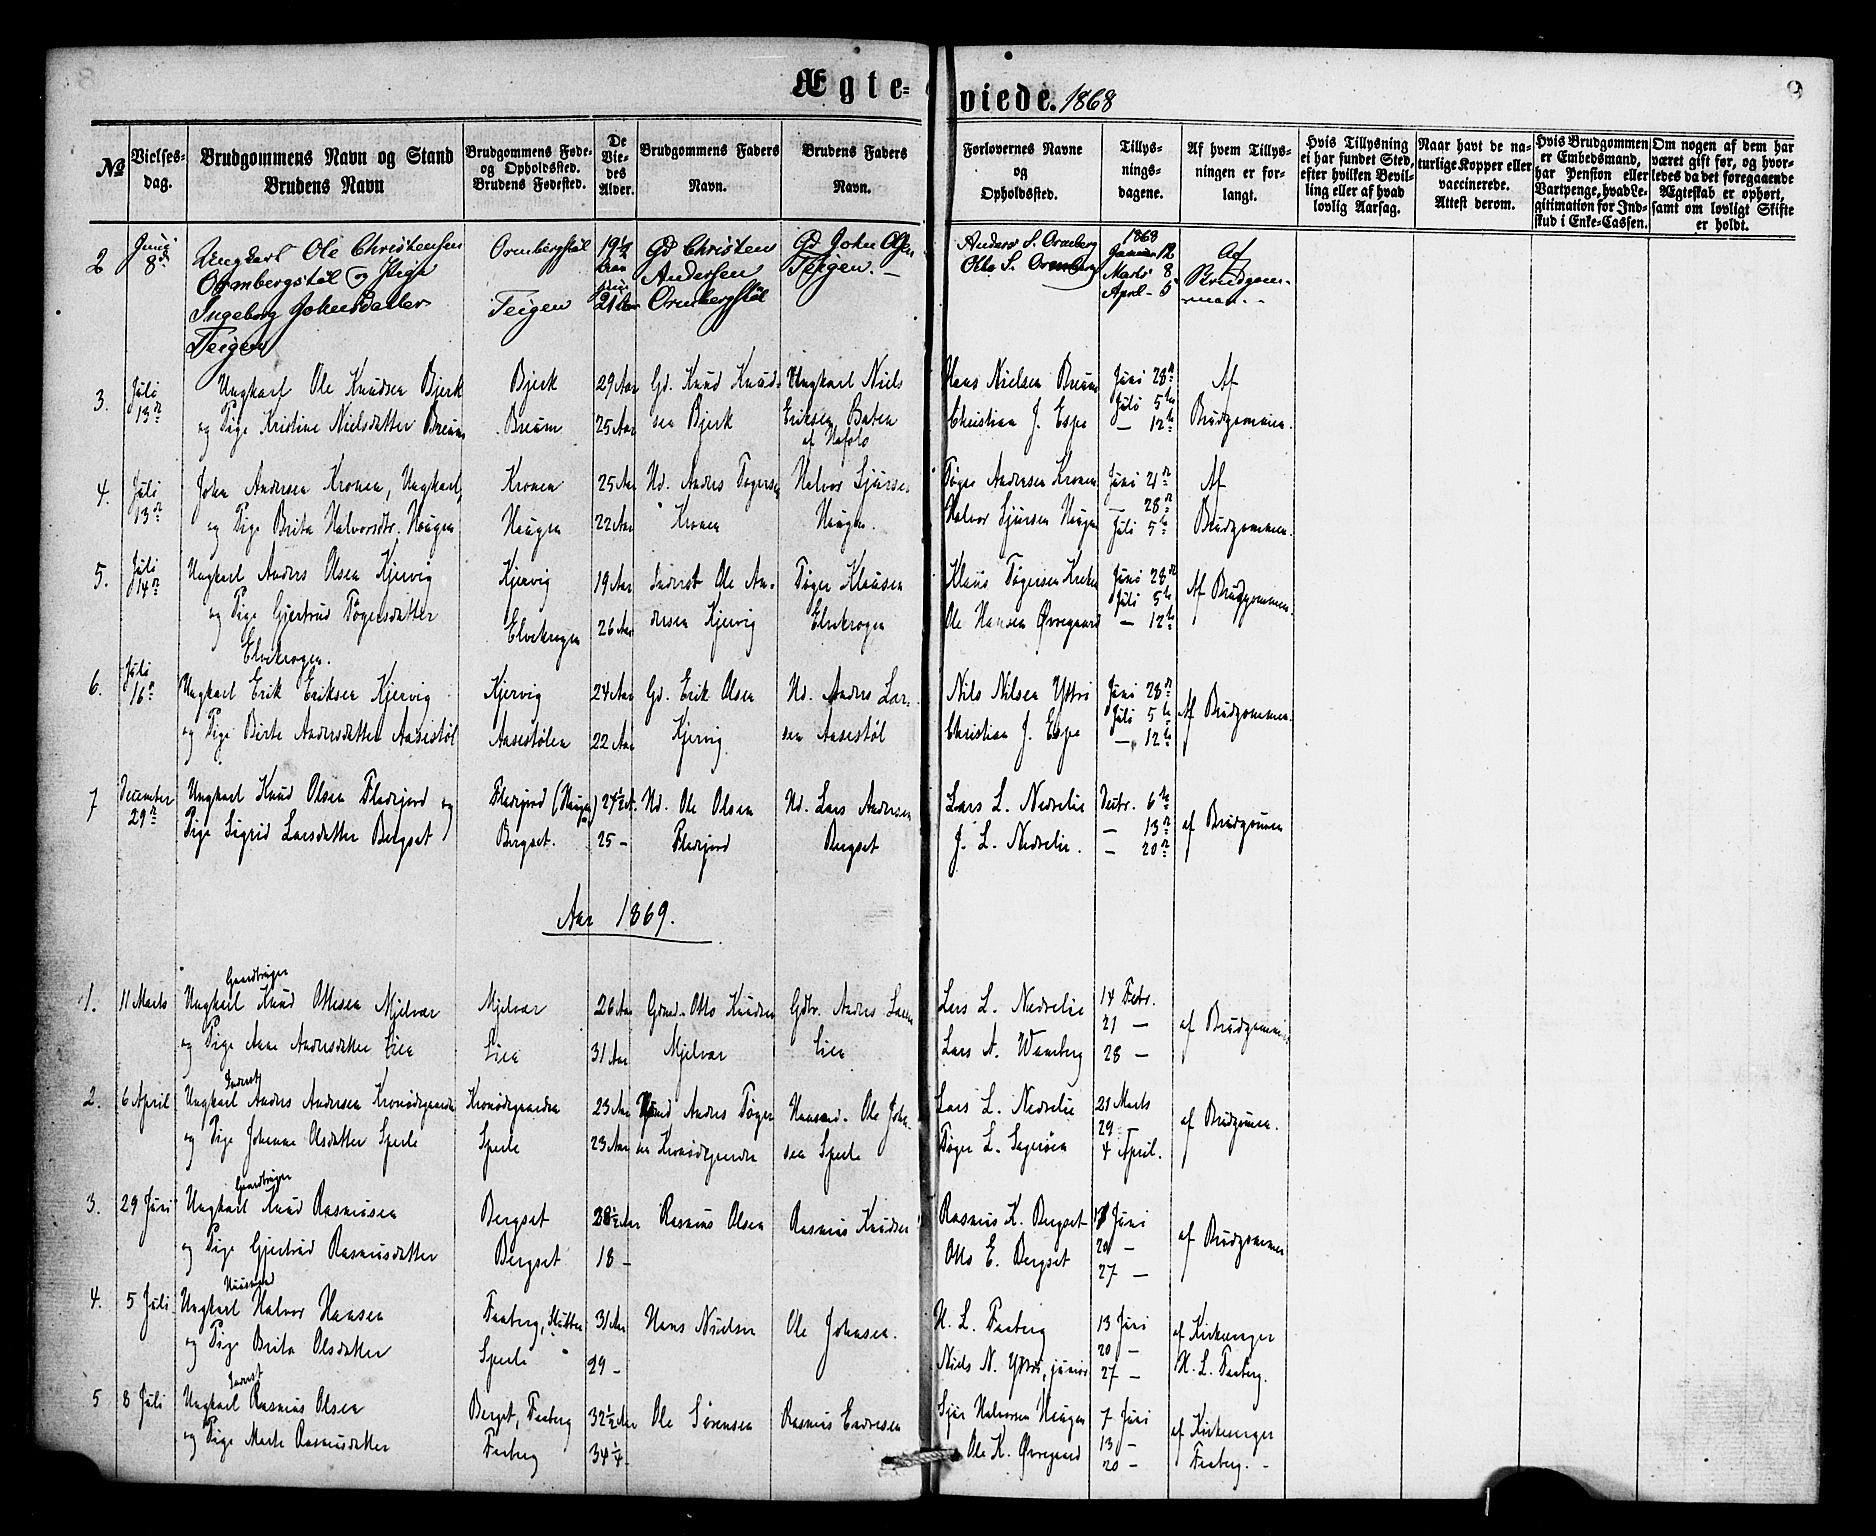 Ægte-viede. 1868
9
№
Vielses-dag.
Brudgommens Navn og Stand
Brudens Navn
Brudgommens Føde- og Opholdssted.
Brudens Fødested.
De Vie-des Alder.
Brudgommens Faders Navn.
Brudens Faders Navn.
Forlovernes Navne og Opholdssted.
Tillys-nings-dagene.
Af hvem Tillys-ningen er for-langt.
Hvis Tillysning ei har fundet Sted, efter hvilken Bevil-ling eller af hvad lovlig Aarsag.
Naar havt de na-turlige Kopper eller vaccinerede. Attest derom.
Hvis Brudgommen er Embedsmand, har Pension eller Vartpenge, hvad Le-gitimation for Ind-skud i Enke-Cassen.
Om nogen af dem har været gift før, og hvor-ledes da det foregaaende Ægteskab er ophørt, samt om lovligt Skifte er holdt.
2 Juni 8de Ungkarl Ole Christensen Ormbergstøl 19½ Gd Christen Gd John Ols Anders S. Ormberg 1868 Januar 12 Af
Ormbergstøl og Pige Andersen Teigen. Otto S. Ormberg Marts 8 Brudgom-
Ingeborg Johnsdatter Teigen 21 Aar Ormbergstøl April 5 men.
Teigen
3. Juli 13de Ungkarl Ole Knudsen Bjerk Bjerk 29 Aar Gd. Knud Knud- Ungkarl Niels Hans Nielsen Breum Juni 28de Af
og Pige Kristine Nielsdatter Breum Breum 25 Aar sen Bjerk Eriksen Christian J. Espe Juli 5te Brudgommen.
af — 12te
4. Juli 13de John Andersen Kronen, Ungkarl, Kronen 25 Aar Hd. Anders Tøgersen Halvor Sjursen Tøger Andersen Kronen Juni 21de Af
og Pige Brita Halvorsdtr. Haugen Haugen 22 Aar Kronen Haugen. Halvor Sjursen Haugen — 28de Brudgommen.
Juli 5te
5. Juli 14de Ungkarl Anders Olsen Kjervig Kjervig 19 Aar Inderst Ole An- Tøger Klausen Klaus Tøgersen Juni 28de Af Brudgommen.
og Pige Gjertrud Tøgersdatter Elvekrogen 26 Aar dersen Kjervig Elvekrogen Ole Hansen Øvregaard Juli 5te
Elvekrogen. — 12te
6. Juli 16de Ungkarl Erik Eriksen Kjervig Kjervig 24 Aar Gd. Erik Olsen Hd. Anders Lar- Nils Nilsen Yttri Juni 28de Af Brudgommen.
og Pige Birte Andersdatter Aasestøl Aasestølen 22 Aar Kjervig sen Aasestøl Christian J. Espe Juli 5te
— 12te
7 December 29de Ungkarl Knud Olsen Fladejord og Fladejord (Haugen) 27½ A. Hd. Ole Olsen Hd. Lars Andersen Lars L. Nedrelie Decbr. 6te af Brudgommen
Pige Sigrid Larsdatter Bergset Bergset. 25 — Fladejord Bergset J. L. Nedrelie. — 13de
— 20de
Aar 1869.
1. 11 Marts Gaardbruger
Ungkarl Knud Ottesen Mjelvær Mjelvær 26 Aar Gdmd. Otto Knudsen Gdbr. Anders Larsen Lars L. Nedrelie 14 Febr. af Brudgommen
og Pige Ane Andersdatter Lien Lien 31 Aar Mjelvær Lien Lars A. Wamberg 21 —
28 —
2. 6 April Inderst
Ungkarl Anders Andersen Kronødegaarden Kronødegaarden 23 Aar Anders Tøger- Huusmd. Ole John- Lars L. Nedrelie 21 Marts af Brudgommen.
og Pige Johanne Olsdatter Sperle Sperle 23 Aar sen Kronødegaarden sen Sperle Tøger L. 29 —
4 April.
3. 29 Juni Gaardbruger
Ungkarl Knud Rasmusen Bergset 28½ Aar Rasmus Olsen Rasmus Knudsen Rasmus K. Bergset 13 Juni af Brudgommen
og Pige Gjertrud Rasmusdatter Bergset 18 — Otto E. Bergset 20 —
27 —
4. 5 Juli Huusmand
Ungkarl Halvor Hansen Faaberg, 31 Aar Hans Nielsen Ole Johnsen. H. L. Faaberg 13 Juni af Kirkesanger
og Pige Brita Olsdatter Sperle 29 — Niels N. Yttri, junior 20 — H. L. Faaberg.
27 —
5 8 Juli Inderst
Ungkarl Rasmus Olsen Berget, Faaberg 32½ Aar Ole Sørensen Rasmus Endresen Sjur Halvorsen Haugen 7 Juni af Kirkesanger
og Pige Marte Rasmusdatter Faaberg 34¼ — Ole K. Øvregaard 13 — Faaberg. —
20 —